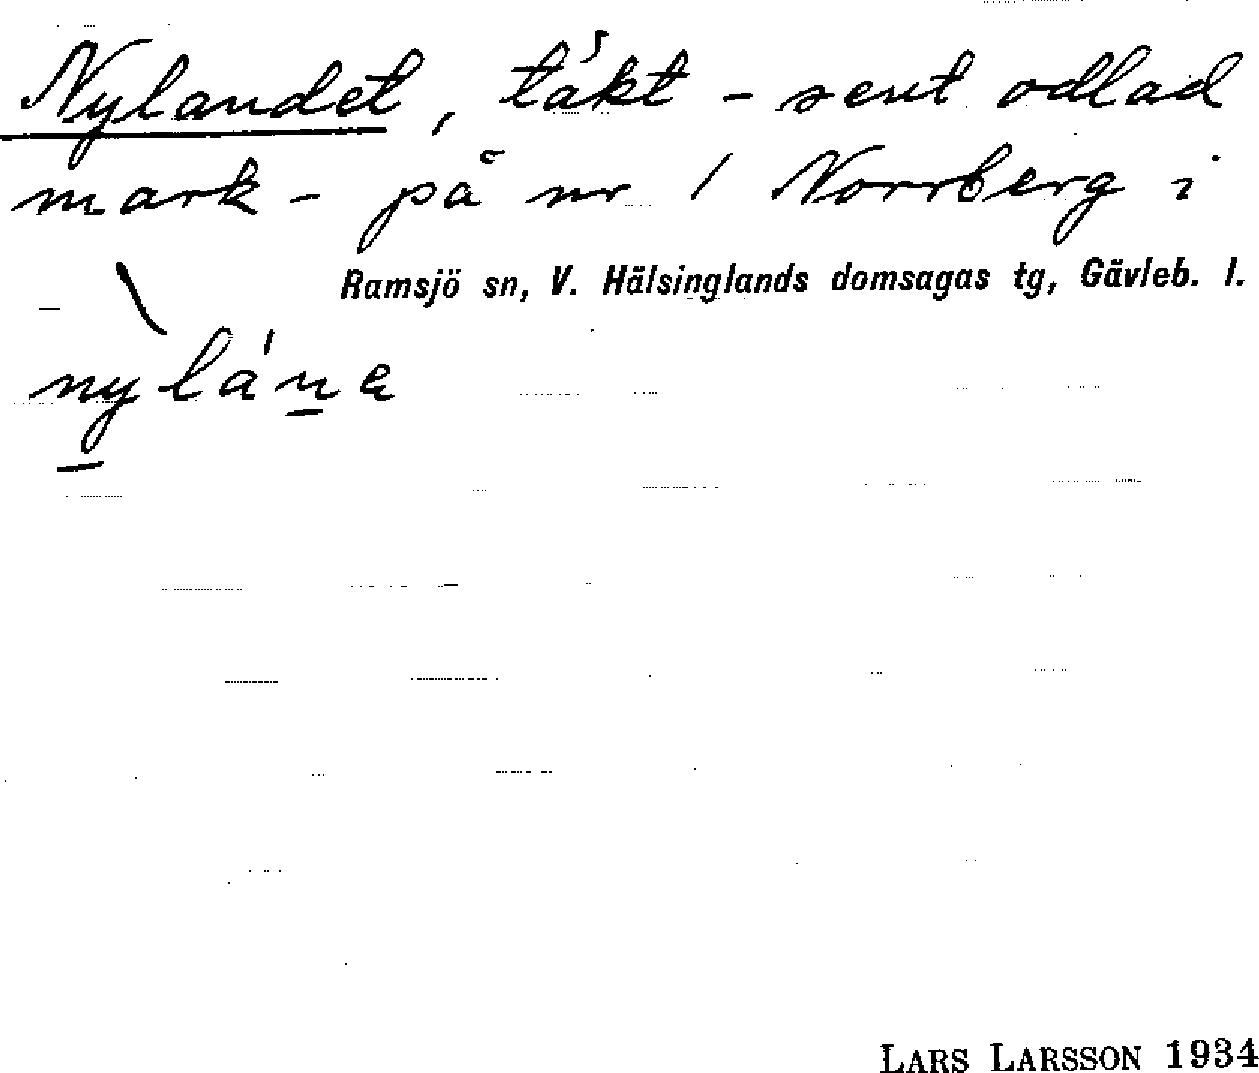 Nylandet, täkt - sent odlad
mark - på nr 1 Norrberg i
Ramsjö sn, V. Hälsinglands domsagas tg, Gävleb. l.
nỳláne
LARS LARSSON 1934